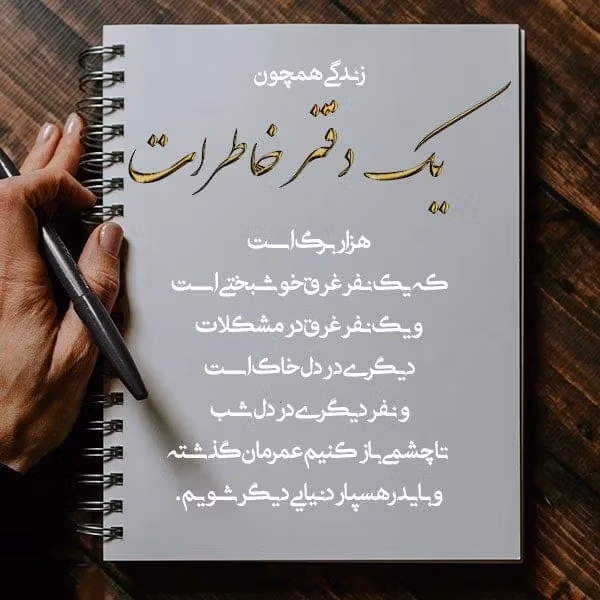 زندگی همچون
یک دفتر خاطرات
هزار برگ است
که یک نفر غرق خوشبختی است
و یک نفر غرق در مشکلات
دیگری در دل خاک است
و نفر دیگری در دل شب
تا چشمی باز کنیم عمرمان گذشته
و باید رهسپار دنیایی دیگر شویم.